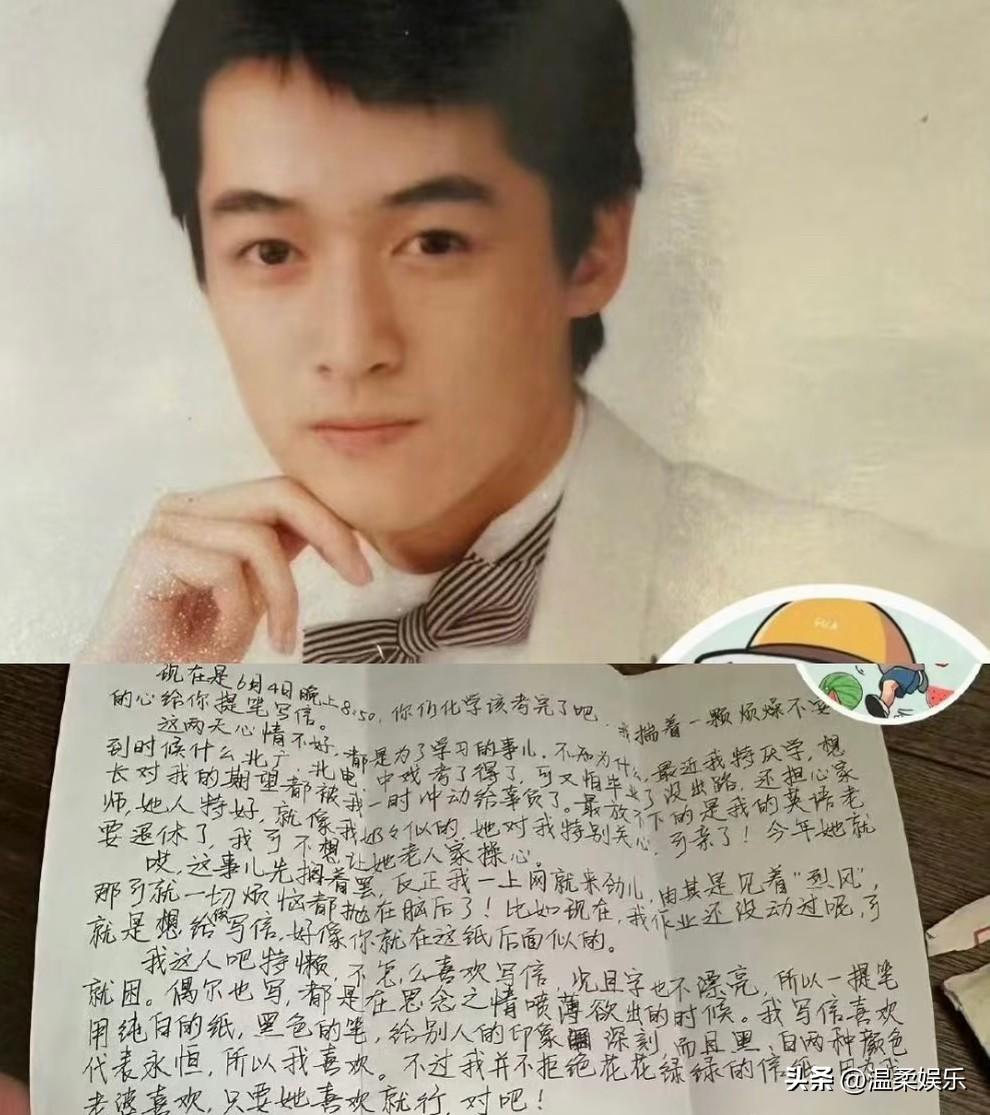 现在是6月4日晚上8:50,你们化学该考完了吧.我揣着一颗烦燥不
的心给你提笔写信。
这两天心情不好,都是为了学习的事儿.不知为什么,最近我特厌学,想
到时候什么北广,北电,中戏考了得了,可又怕毕业了没出路,还担心家
长对我的期望都被我一时冲动给辜负了。最放不下的是我的英语老
师,她人特好,就像我奶奶似的,她对我特别关心,可亲了!今年她就
要退休了,我可不想让她老人家操心。
哎,这事儿先搁着罢,反正我一上网就来劲儿,由其是见着"烈风",
那可就一切烦恼都抛在脑后了!比如现在,我作业还没动过呢,可
就是想给你写信,好像你就在这纸后面似的。
我这人吧特懒,不怎么喜欢写信,况且字也不漂亮,所以一提笔
就困。偶尔也写,都是在思念之情喷薄欲出的时候。我写信喜欢
用纯白的纸,黑色的笔,给别人的印象深刻,而且黑、白两种颜色
代表永恒,所以我喜欢。不过我并不拒绝花花绿绿的信纸,
老婆喜欢,只要她喜欢就行,对吧!
头条 @温柔娱乐